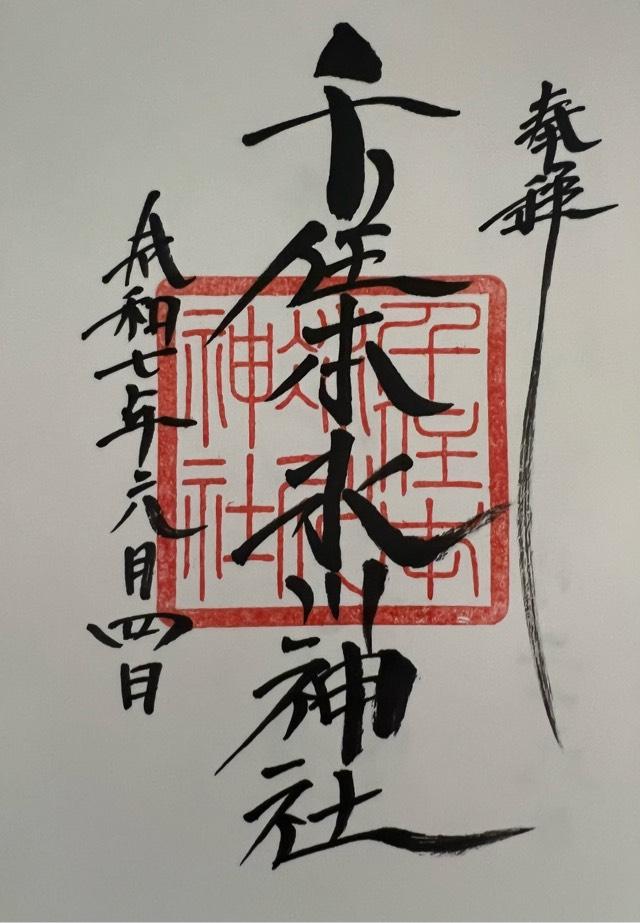 奉拝
千住本氷川神社
令和七年六月四日
千住本
神社